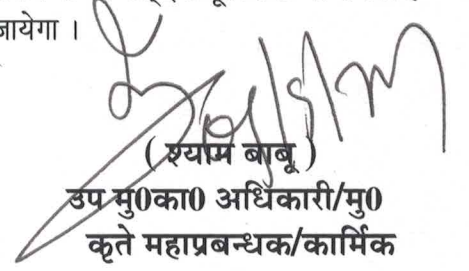 जायेगा ।
( श्याम बाबू )
उप मु0का0 अधिकारी/मु0
कृते महाप्रबन्धक/कार्मिक